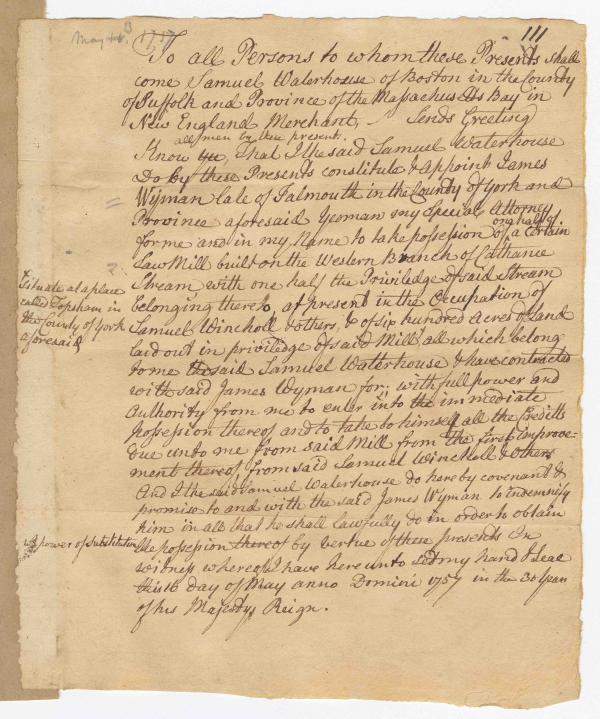 111
1757
To all Persons to whom these Presents shall
come Samuel Waterhouse of Boston in the County
of Suffolk and Province of the Massachusetts Bay in
New England Merchant, Sends Greeting
all men by these present.
Know ye, That I the said Samuel Waterhouse
Do by these Presents constitute & Appoint James
Wyman late of Falmouth in the County of York and
Province aforesaid Yeoman my Special Attorney
for me and in my Name to take possession one half of of a certain
Saw Mill built on the Western Branch of Cathance
Stream with one half the Priviledge of said Stream
Situate at a place
called Topsham in
the County of York
aforesaid
belonging thereto, at present in the Occupation of
Samuel Winchell & others, & of six hundred Acres of Land
laid out in priviledge of said Mill, all which belong
to me the said Samuel Waterhouse & have contracted
with said James Wyman for; with full power and
Authority from me to enter into the immediate
possession thereof and to take to himself all the Creditts
due unto me from said Mill from the first improve-
ment thereof from said Samuel Winchell & others
And I the said Samuel Waterhouse do hereby covenant &
promise to and with the said James Wyman to indemnify
him in all that he shall lawfully do in order to obtain
power of substitution
the possession thereof by vertue of these presents In
witness whereof I have here unto set my hand & Seal
this 16 day of May anno Domini 1757 in the 30 Year
of his Majestys Reign.